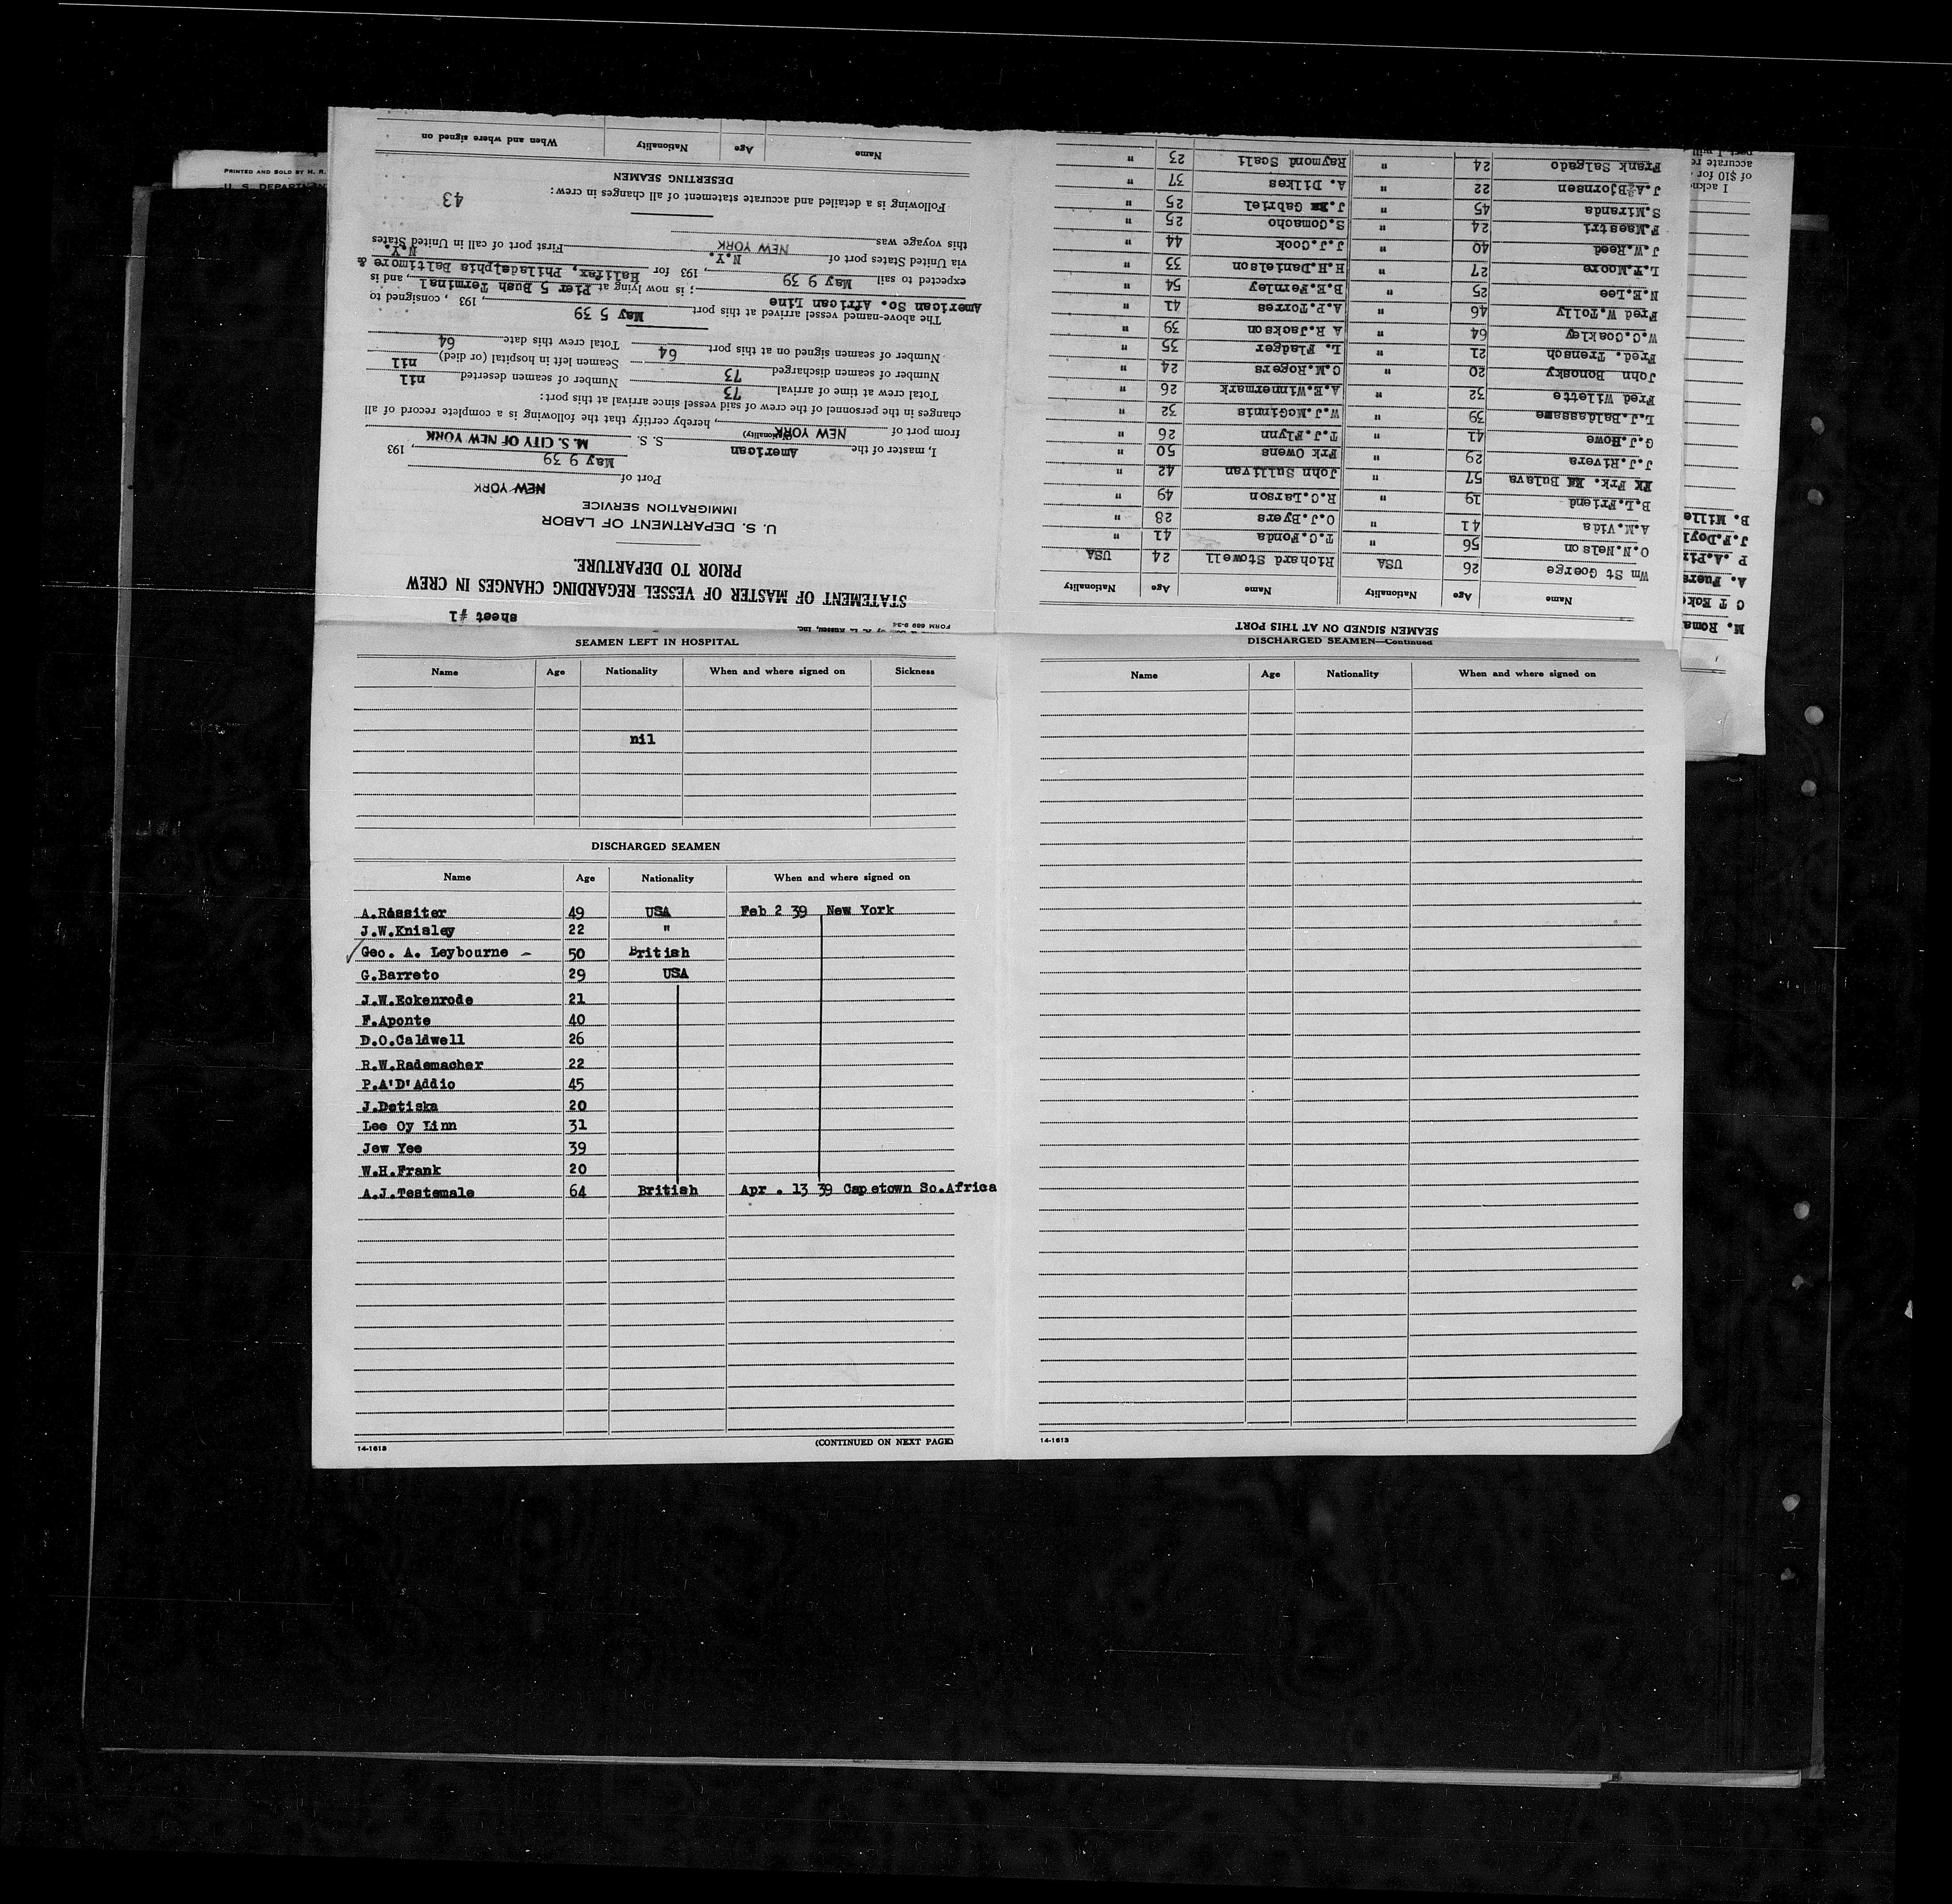 PRINTED AND SOLD BY H. R.
U. S. DEPARTMENT
sheet #1
FORM 689 9-34
STATEMENT OF MASTER OF VESSEL REGARDING CHANGES IN CREW
PRIOR TO DEPARTURE.
U. S. DEPARTMENT OF LABOR
IMMIGRATION SERVICE
NEW YORK
Port of
May 9 39, 193
I, master of the American S. S. M.S. CITY OF NEW YORK
(Nationality)
from port of NEW YORK, hereby certify that the following is a complete record of all
changes in the personnel of the crew of said vessel since arrival at this port:
Total crew at time of arrival 73 Number of seamen deserted nil
Number of seamen discharged 73 Seamen left in hospital (or died) nil
Number of seamen signed on at this port 64 Total crew this date 64
The above-named vessel arrived at this port May 5 39, 193 , consigned to
American So. African Line ; is now lying at Pier 5 Bush Terminal, and is
expected to sail May 9 39, 193 for Halifax, Philadelphia Baltimore &
via United States port of N.Y. N.Y.
this voyage was NEW YORK First port of call in United States
43
Following is a detailed and accurate statement of all changes in crew:
DESERTING SEAMEN
Name Age Nationality When and where signed on
SEAMEN SIGNED ON AT THIS PORT
Name Age Nationality Name Age Nationality
Wm St Goerge 26 USA Richard Stowell 24 USA
O.N.Nelson 56 " T.C.Fonda 41 "
A.M.Vida 41 " O.J.Byers 28 "
B.L.Friend 19 " R.C.Larson 49 "
Frk. Bulava 57 " John Sullivan 42 "
J.J.Rivera 29 " Frk Owens 50 "
G.J.Howe 41 " T.J.Flynn 26 "
L.J.Baldassame 39 " W.J.McGinnis 32 "
Fred Willette 32 " A.E.Winnermark 26 "
John Bonosky 20 " C.M.Rogers 24 "
Fred. Trensch 21 " L. Fladger 35 "
W.C.Coakley 64 " A R.Jackson 39 "
Fred W.Tolly 46 " A.P.Torres 41 "
N.E.Lee 25 " B.E.Fernley 54 "
L.T.Moore 27 " H.H.Danielson 33 "
J.W.Reed 40 " J.J.Cook 44 "
F.Maestri 24 " S.Comacho 25 "
S.Miranda 45 " J. Gabriel 25 "
J.A.Bjornsen 22 " A. Dilkes 37 "
Frank Salgado 24 " Raymond Scall 23 "
M. Roma
C T Eck
A. Fuers
P .A.Pi
J.F.Doyl
B. Mille
I ackn
of $10 for
accurate re
SEAMEN LEFT IN HOSPITAL
Name Age Nationality When and where signed on Sickness
nil
DISCHARGED SEAMEN
Name Age Nationality When and where signed on
A.Rossiter 49 USA Feb 2 39 New York
J.W.Knisley 22 "
Geo. A. Leybourne - 50 British
G.Barreto 29 USA
J.W.Eckenrode 21
F.Aponte 40
D.O.Caldwell 26
R.W.Rademacher 22
P.A'D'Addio 45
J.Detiska 20
Lee Oy Linn 31
Jew Yee 39
W.H.Frank 20
A.J.Testemale 64 British Apr . 13 39 Capetown So.Africa
14-1613 (CONTINUED ON NEXT PAGE)
DISCHARGED SEAMEN—Continued
Name Age Nationality When and where signed on
14-1613